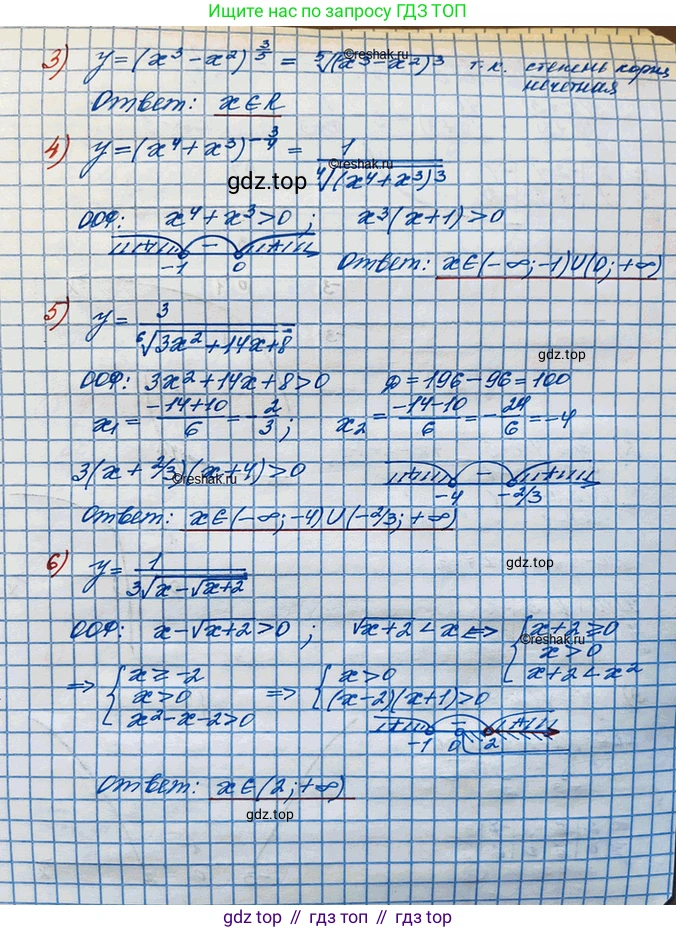 Ищите нас по запросу ГДЗ ТОП
3) y=(x³-x²)^{3/5} = ⁵√(x³-x²)³ т.к. степень корня нечетная
©reshak.ru
Ответ: x∈R
4) y=(x⁴+x³)^{-3/4} = 1/⁴√(x⁴+x³)³
©reshak.ru
gdz.top
ООФ: x⁴+x³>0; x³(x+1)>0
+ − +
-1 0
Ответ: x∈(-∞;-1)∪(0;+∞)
5) y= 3/⁶√3x²+14x+8
gdz.top
ООФ: 3x²+14x+8>0 D=196-96=100
x₁= (-14+10)/6 = -2/3; x₂= (-14-10)/6 = -24/6 = -4
3(x+2/3)(x+4)>0
©reshak.ru
+ − +
-4 -2/3
Ответ: x∈(-∞;-4)∪(-2/3;+∞)
6) y= 1/3√x-√x+2
gdz.top
ООФ: x-√x+2>0; √x+2<x <=> { x+2≥0
x>0
x+2<x²
©reshak.ru
=> { x≥-2
x>0
x²-x-2>0
=> { x>0
(x-2)(x+1)>0
+ − +
-1 0 2
Ответ: x∈(2;+∞)
gdz.top
gdz top // гдз топ // gdz.top